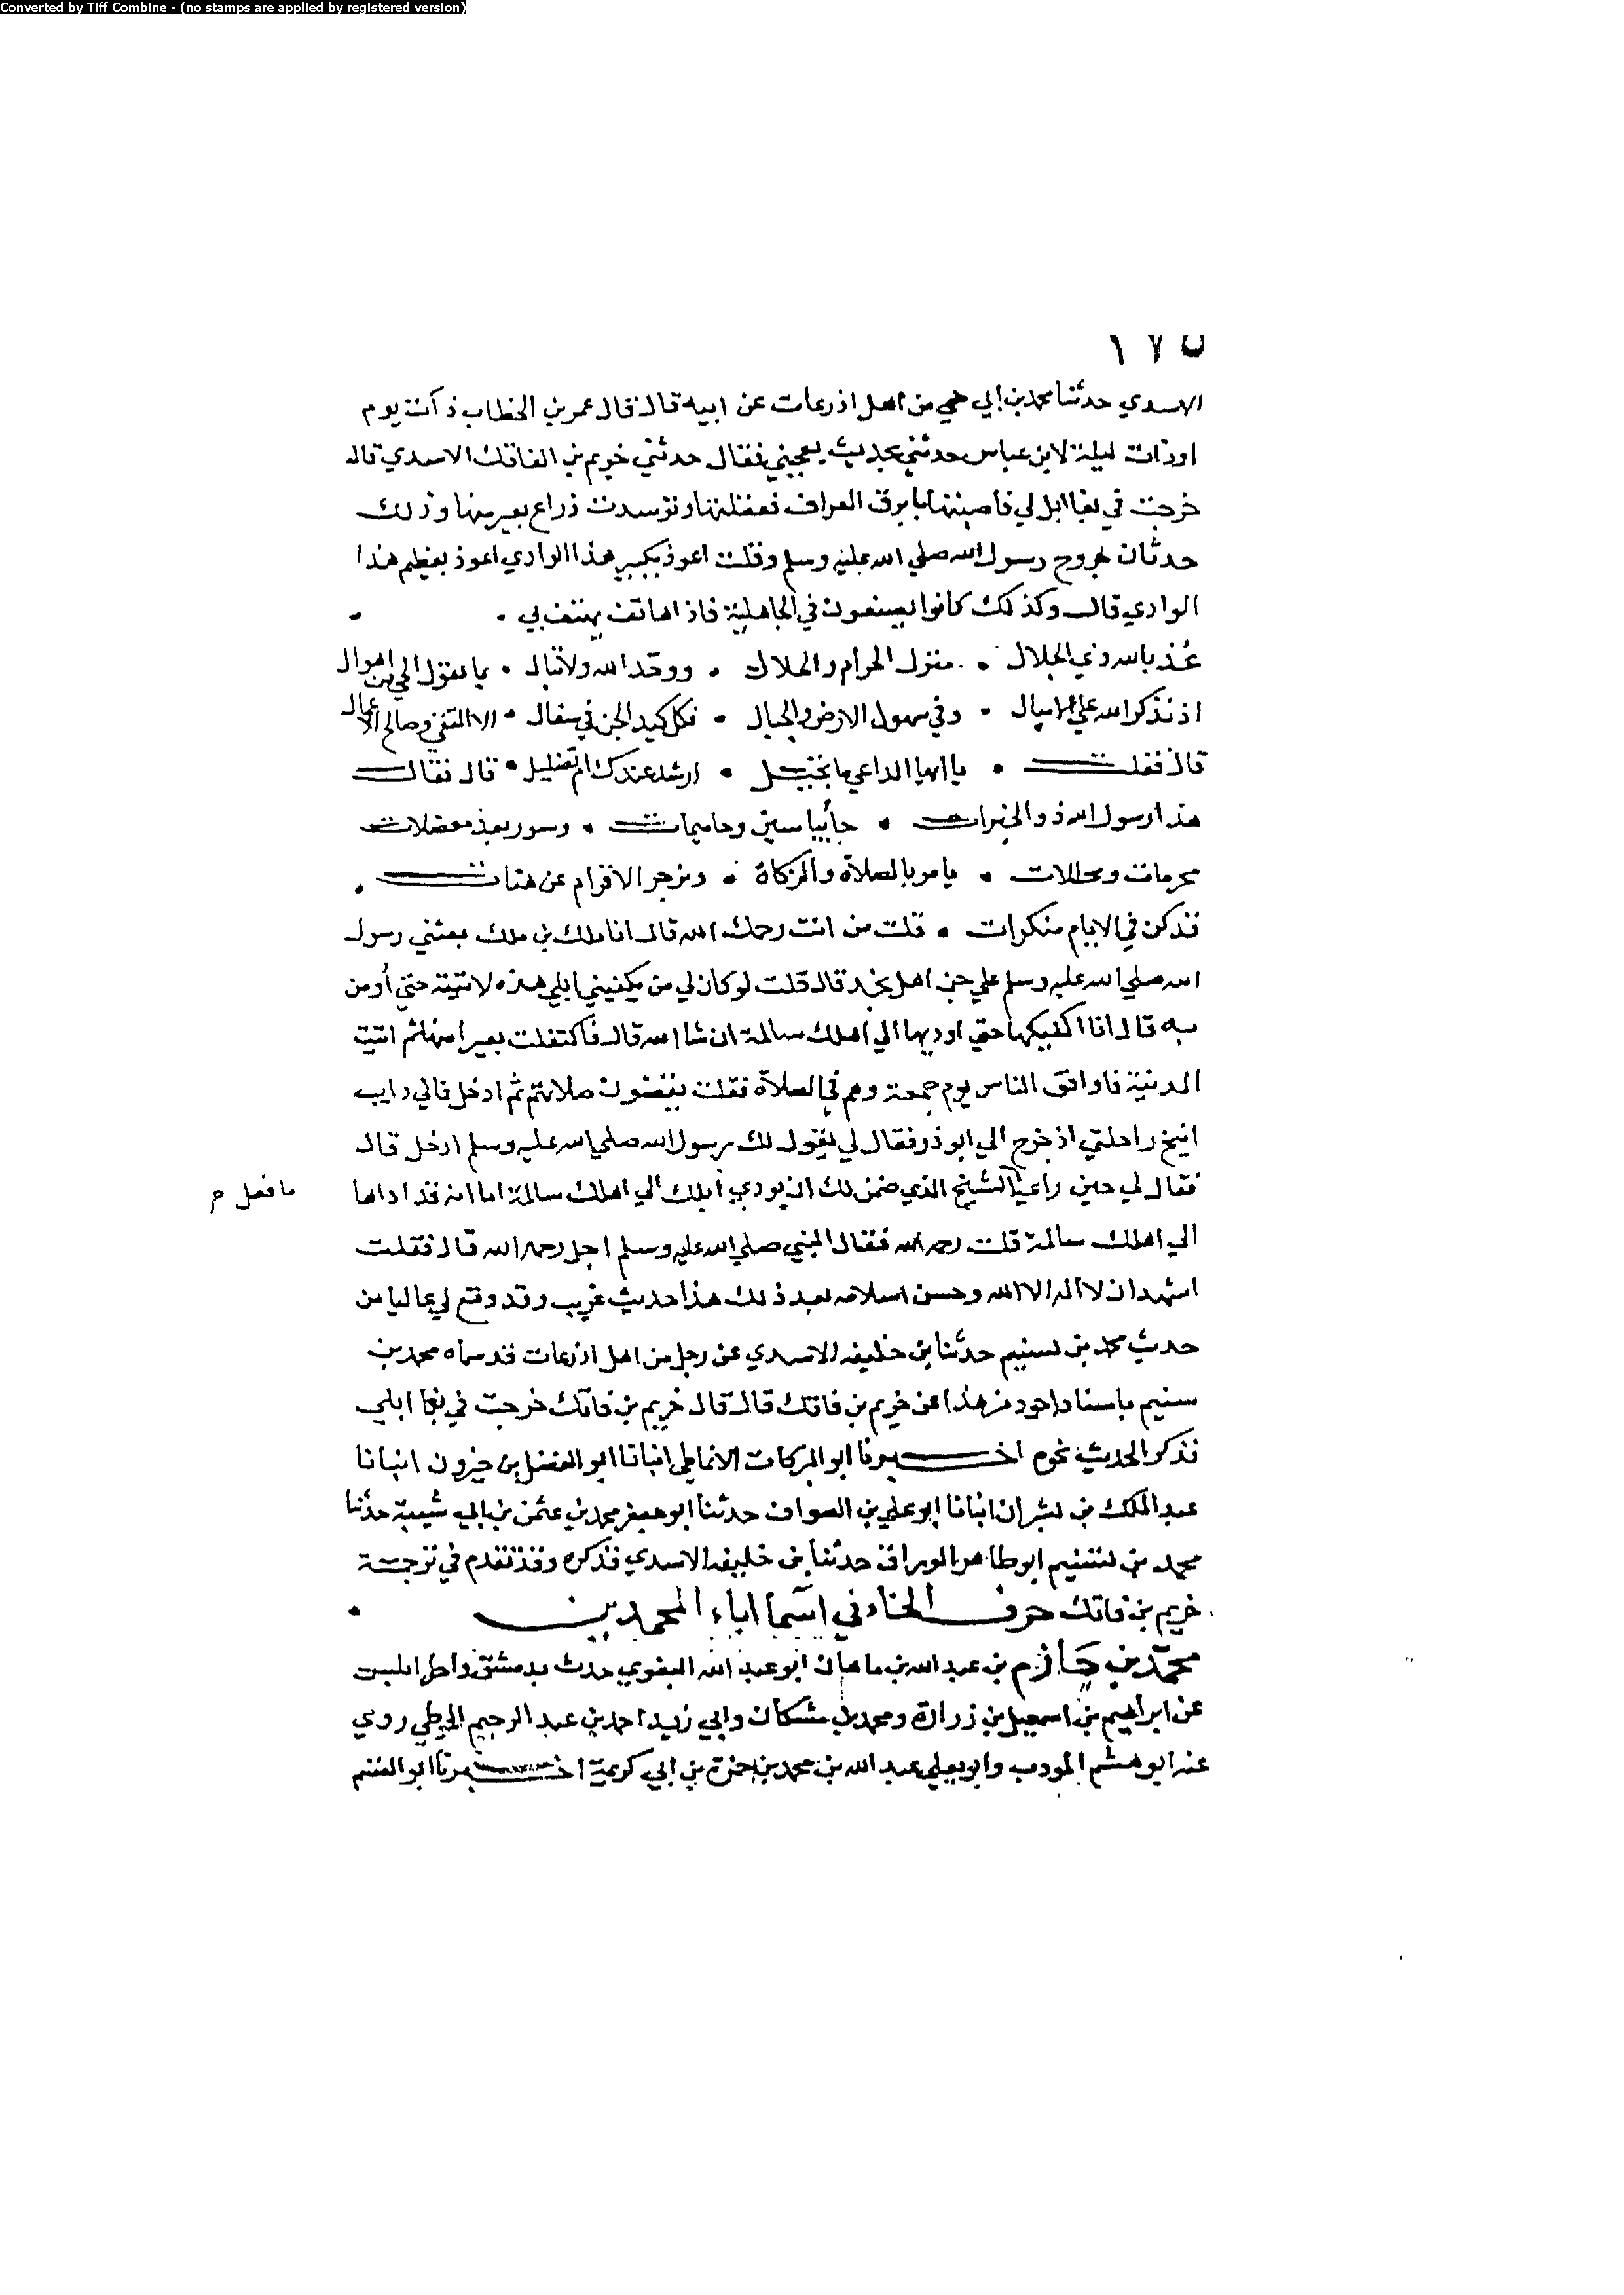 Converted by Tiff Combine - (no stamps are applied by registered version)
١٧٥
الاسدي حدثنا محمد بن ابي حي من اهل اذرعات عن ابيه قال قال عمر بن الخطاب ذات يوم
اوذات ليلة لابن عباس حدثني بحديث يعجبني فقال حدثني خريم بن الفاتك الاسدي قال
خرجت في بغا ابل لي فاصبتها بابرق العراف فعقلتها وتوسدت ذراع بعير منها وذلك
حدثان خروج رسول الله صلي الله عليه وسلم وقلت اعوذ بكبير هذا الوادي اعوذ بعظيم هذا
الوادي قال وكذلك كانوا يصنعون في الجاهلية فاذا هاتف يهتف بي •
عُذ بالله ذي الجلال • منزل الحرام والحلال • ووحّد الله ولا تبال • ما هول الجن من اهوال
اذ تذكر الله علي الاميال • وفي سهول الارض والجبال • فكل كيد الجن في سفال • الا التقي وصالح الاعمال
قال فقلت • يا ايها الداعي ما تخيل • ارشد عندك ام تضليل • قال فقال
هذا رسول الله ذو الخيرات • جا بياسين وحاميمات • وسور بعد مفصلات
محرمات ومحللات • يامر بالصلاة والزكاة • ويزجر الاقوام عن هنات •
قد كن في الايام منكرات • قلت من انت رحمك الله قال انا ملك بن ملك بعثني رسول
الله صلي الله عليه وسلم علي جن اهل نجد قال قلت لو كان لي من يكفيني ابلي هذه لاتيته حتي أومن
به قال انا اكفيكها حتي اوديها الي اهلك سالمة ان شا الله قال فاكتفلت بعيرا منها ثم اتيت
المدينة فاوافق الناس يوم جمعة وهم في الصلاة فقلت يقضون صلاتهم ثم ادخل فاني دايب
انيخ راحلتي اذ خرج الي ابو ذر فقال لي يقول لك رسول الله صلي الله عليه وسلم ادخل قال
فقال لي حين راني الشيخ الذي ضمن لك ان يودي ابلك الي اهلك سالمة اما انه قد اداها
ما فعل م
الي اهلك سالمة قلت رحمه الله فقال النبي صلي الله عليه وسلم اجل رحمه الله قال فقلت
اشهد ان لا اله الا الله وحسن اسلامه بعد ذلك هذا حديث غريب وقد وقع لي عاليا من
حديث محمد بن تسنيم حدثنا بن خليفه الاسدي عن رجل من اهل اذرعات قد سماه محمد بن
تسنيم باسناد اجود من هذا عن خريم بن فاتك قال قال خريم بن فاتك خرجت في بغا ابلي
فذكر الحديث نحوه اخبرنا ابو البركات الانماطي انبانا ابو الفضل بن خيرون انبانا
عبد الملك بن بشران انبانا ابو علي بن الصواف حدثنا ابو جعفر محمد بن عثمن بن ابي شيبة حدثنا
محمد بن تسنيم ابو طاهر الوراق حدثنا بن خليفه الاسدي فذكره وقد تقدم في ترجمة
خريم بن فاتك حرف الخاء في اسما اباء المحمدين •
محمد بن خازم بن عبد الله بن ماهان ابو عبد الله البغوي حدث بدمشق واطرابلس
عن ابراهيم بن اسمعيل بن زرارة ومحمد بن مشكان وابي زيد احمد بن عبد الرحيم الحوطي روي
عنه ابو هشم المودب وابو يعلي عبد الله بن محمد بن حمزة بن ابي كريمة اخبرنا ابو الغنم